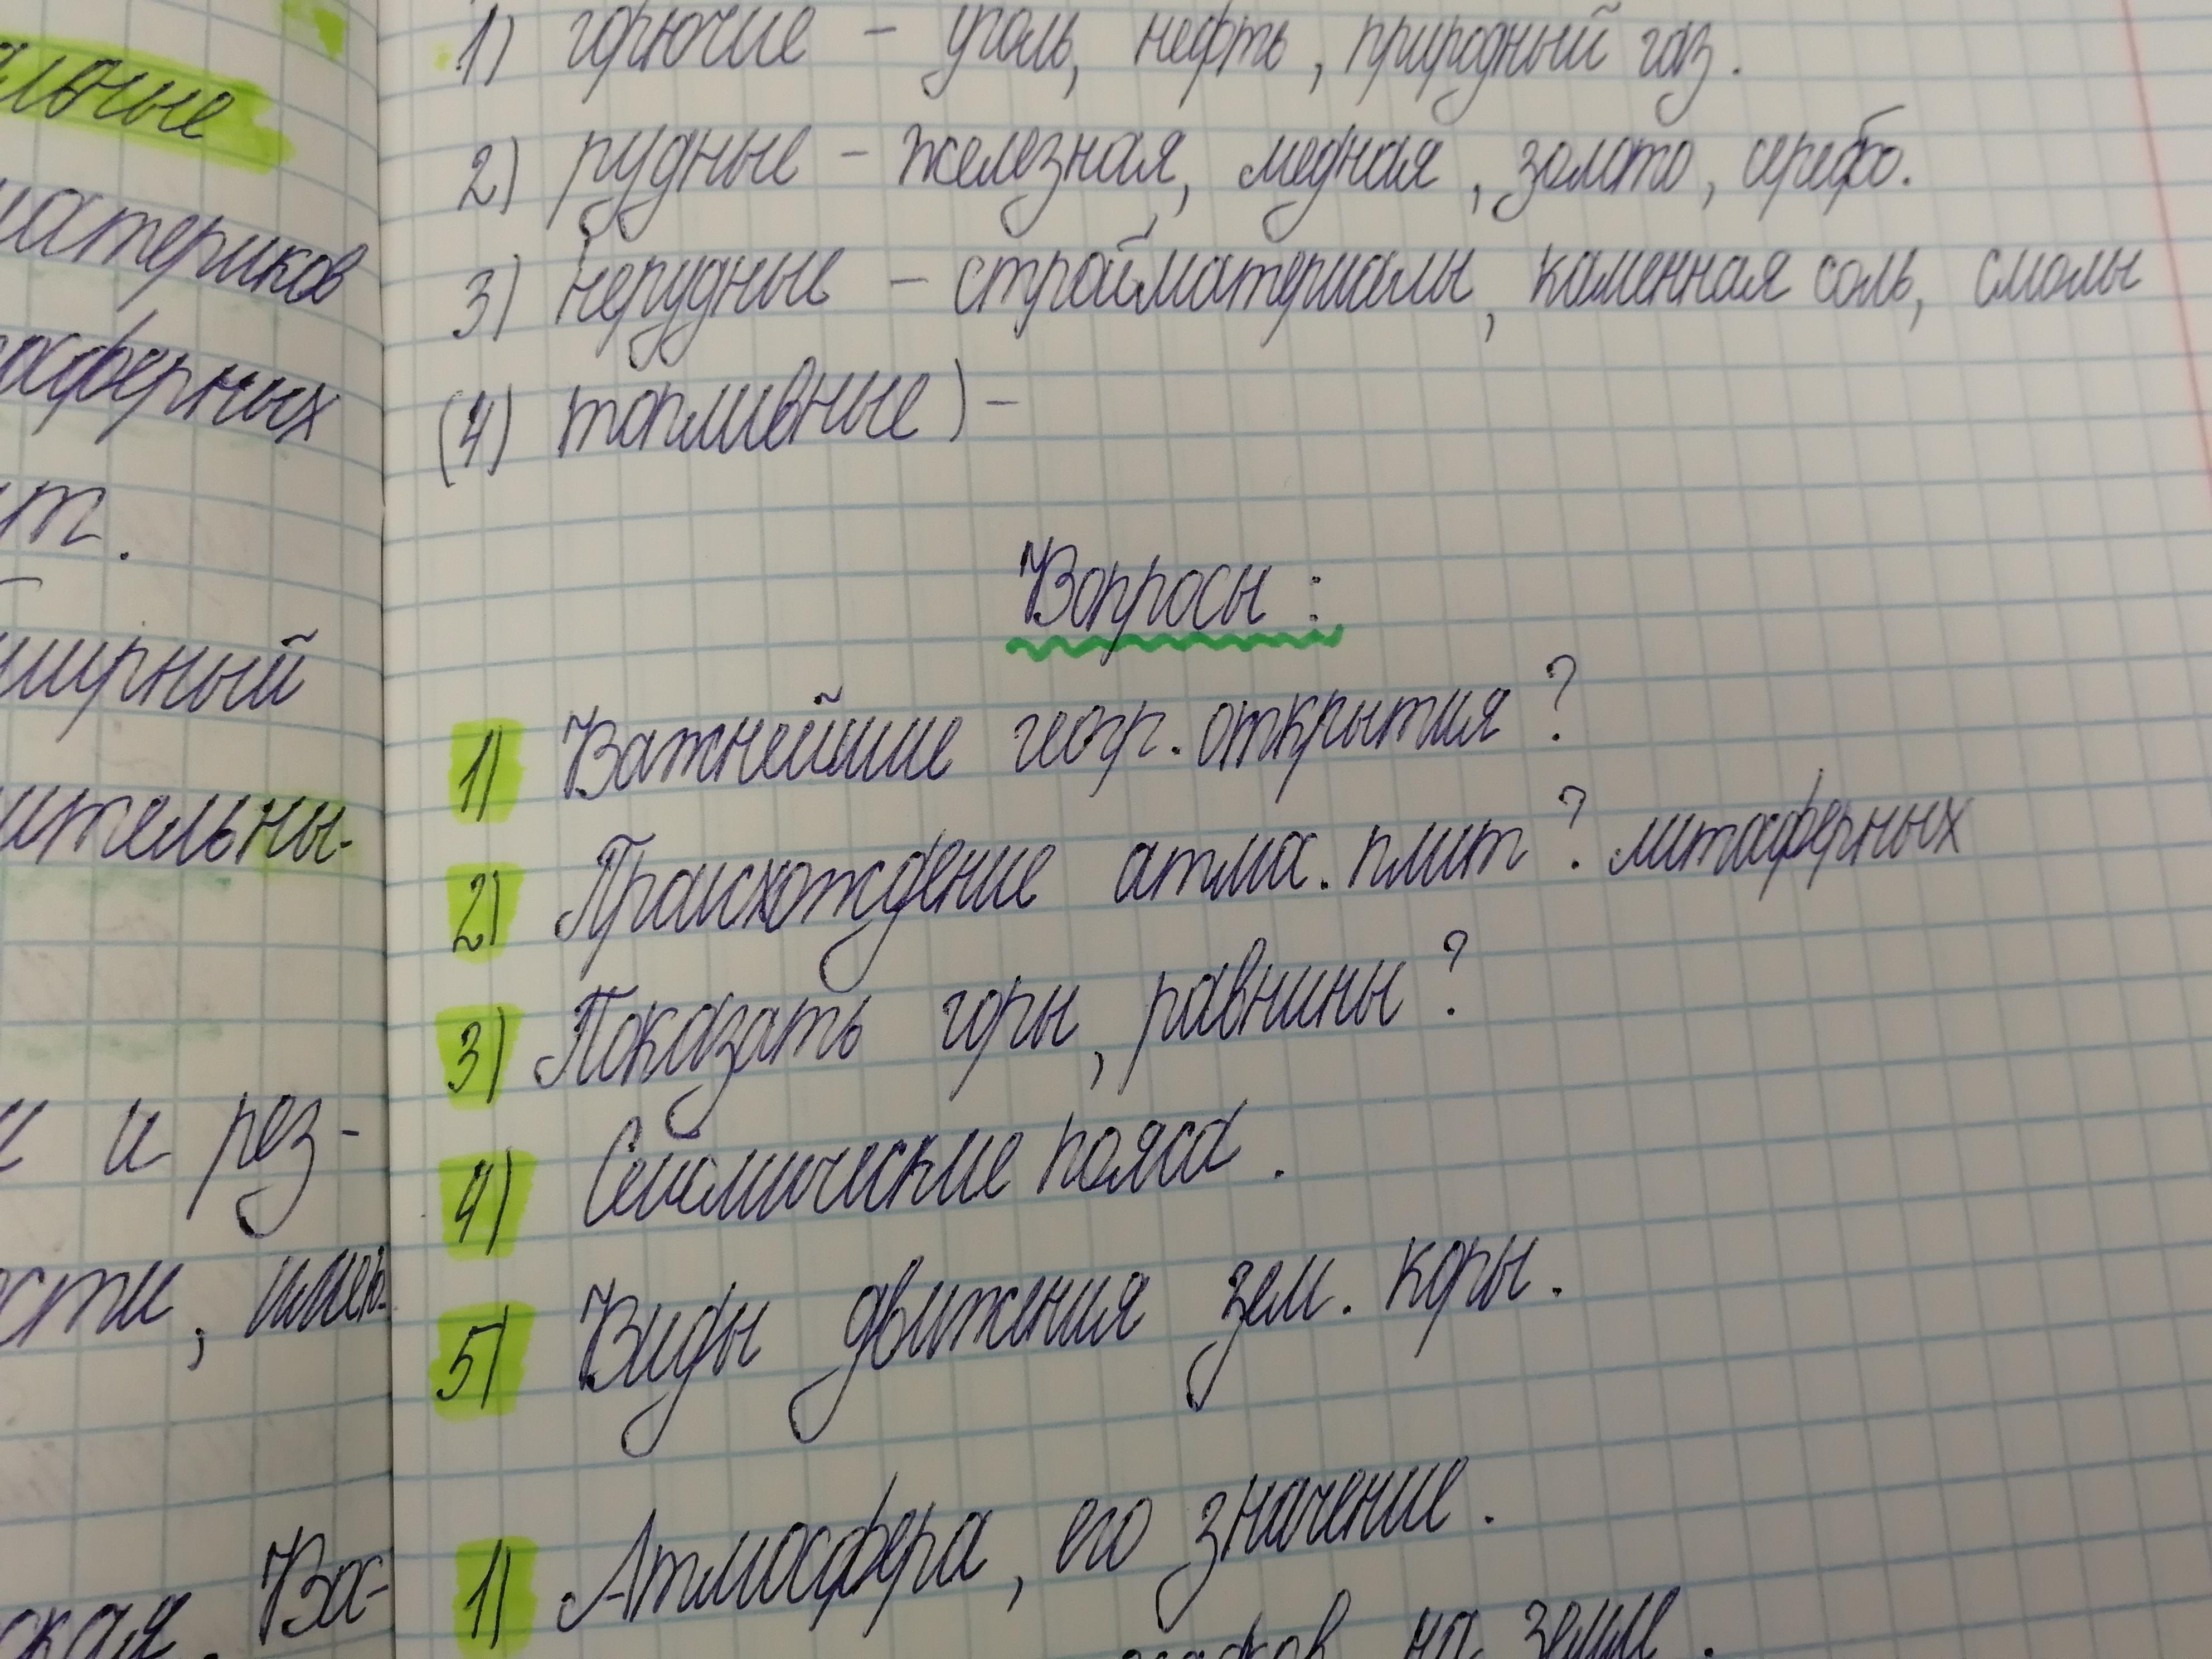 льные
материков
осферных
ит.
ширный
ительны-
и рез-
сти, имею-
ская. Вос-
1) горючие – уголь, нефть, природный газ.
2) рудные – железная, медная, золото, серебо.
3) нерудные – стройматериалы, каменная соль, смолы
(4) топливные) –
Вопросы :
1) Важнейшие геогр. открытия ?
2) Происхождение атмос. плит ? литосферных
3) Показать горы, равнины ?
4) Сейсмические пояса.
5) Виды движения зем. коры.
1) Атмосфера, его значение.
на земле.